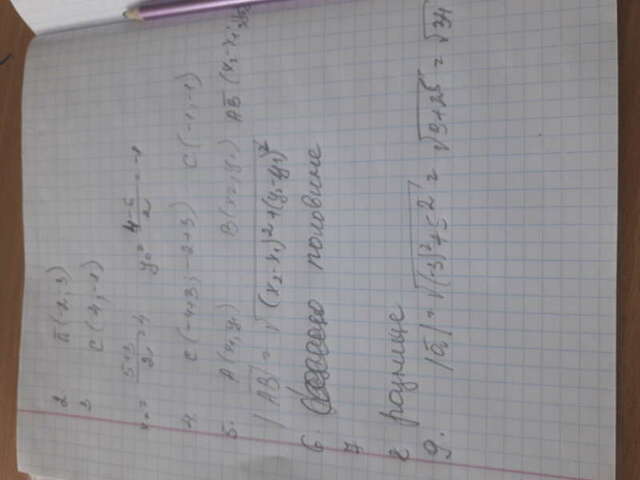 2 п(-2; 3)
3 C(4; -1)
x₀ = (5+3)/2 = 4 y₀ = (4-6)/2 = -1
4. C(-4+3; -2+3) C(-1; -1)
5. A(x₁, y₁) B(x₂, y₁) AB (x₂-x₁;
|AB| = √((x₂-x₁)²+(y₂-y₁)²
6. половине
7
8 разнице
9. |a| = √((-3)²+5²) = √(9+25) = √34